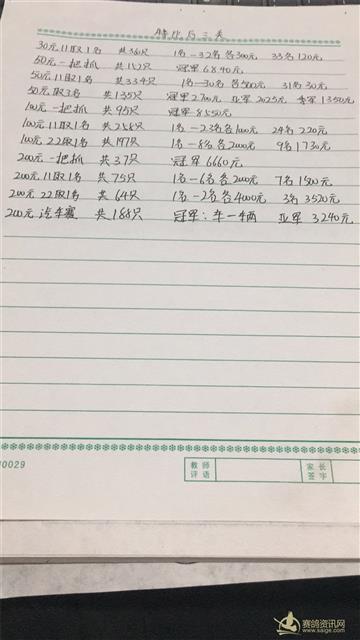 特比后三关
30元11取1名 共360只 1名-32名各300元 33名120元
50元一把抓 共152只 冠军6840元
50元11取1名 共334只 1名-30名各500元 31名30元
50元取3名 共135只 冠军2700元 亚军2025元 季军1350元
100元一把抓 共95只 冠军8550元
100元11取1名 共258只 1名-23名各1000元 24名220元
100元22取1名 共197只 1名-8名各2000元 9名1730元
200元一把抓 共37只 冠军6660元
200元11取1名 共75只 1名-6名各2000元 7名1500元
200元22取1名 共64只 1名-2名各4000元 3名3520元
200元汽车赛 共188只 冠军:车一辆 亚军3240元
0029
教师评语 家长签字
赛鸽资讯网
www.saige.com